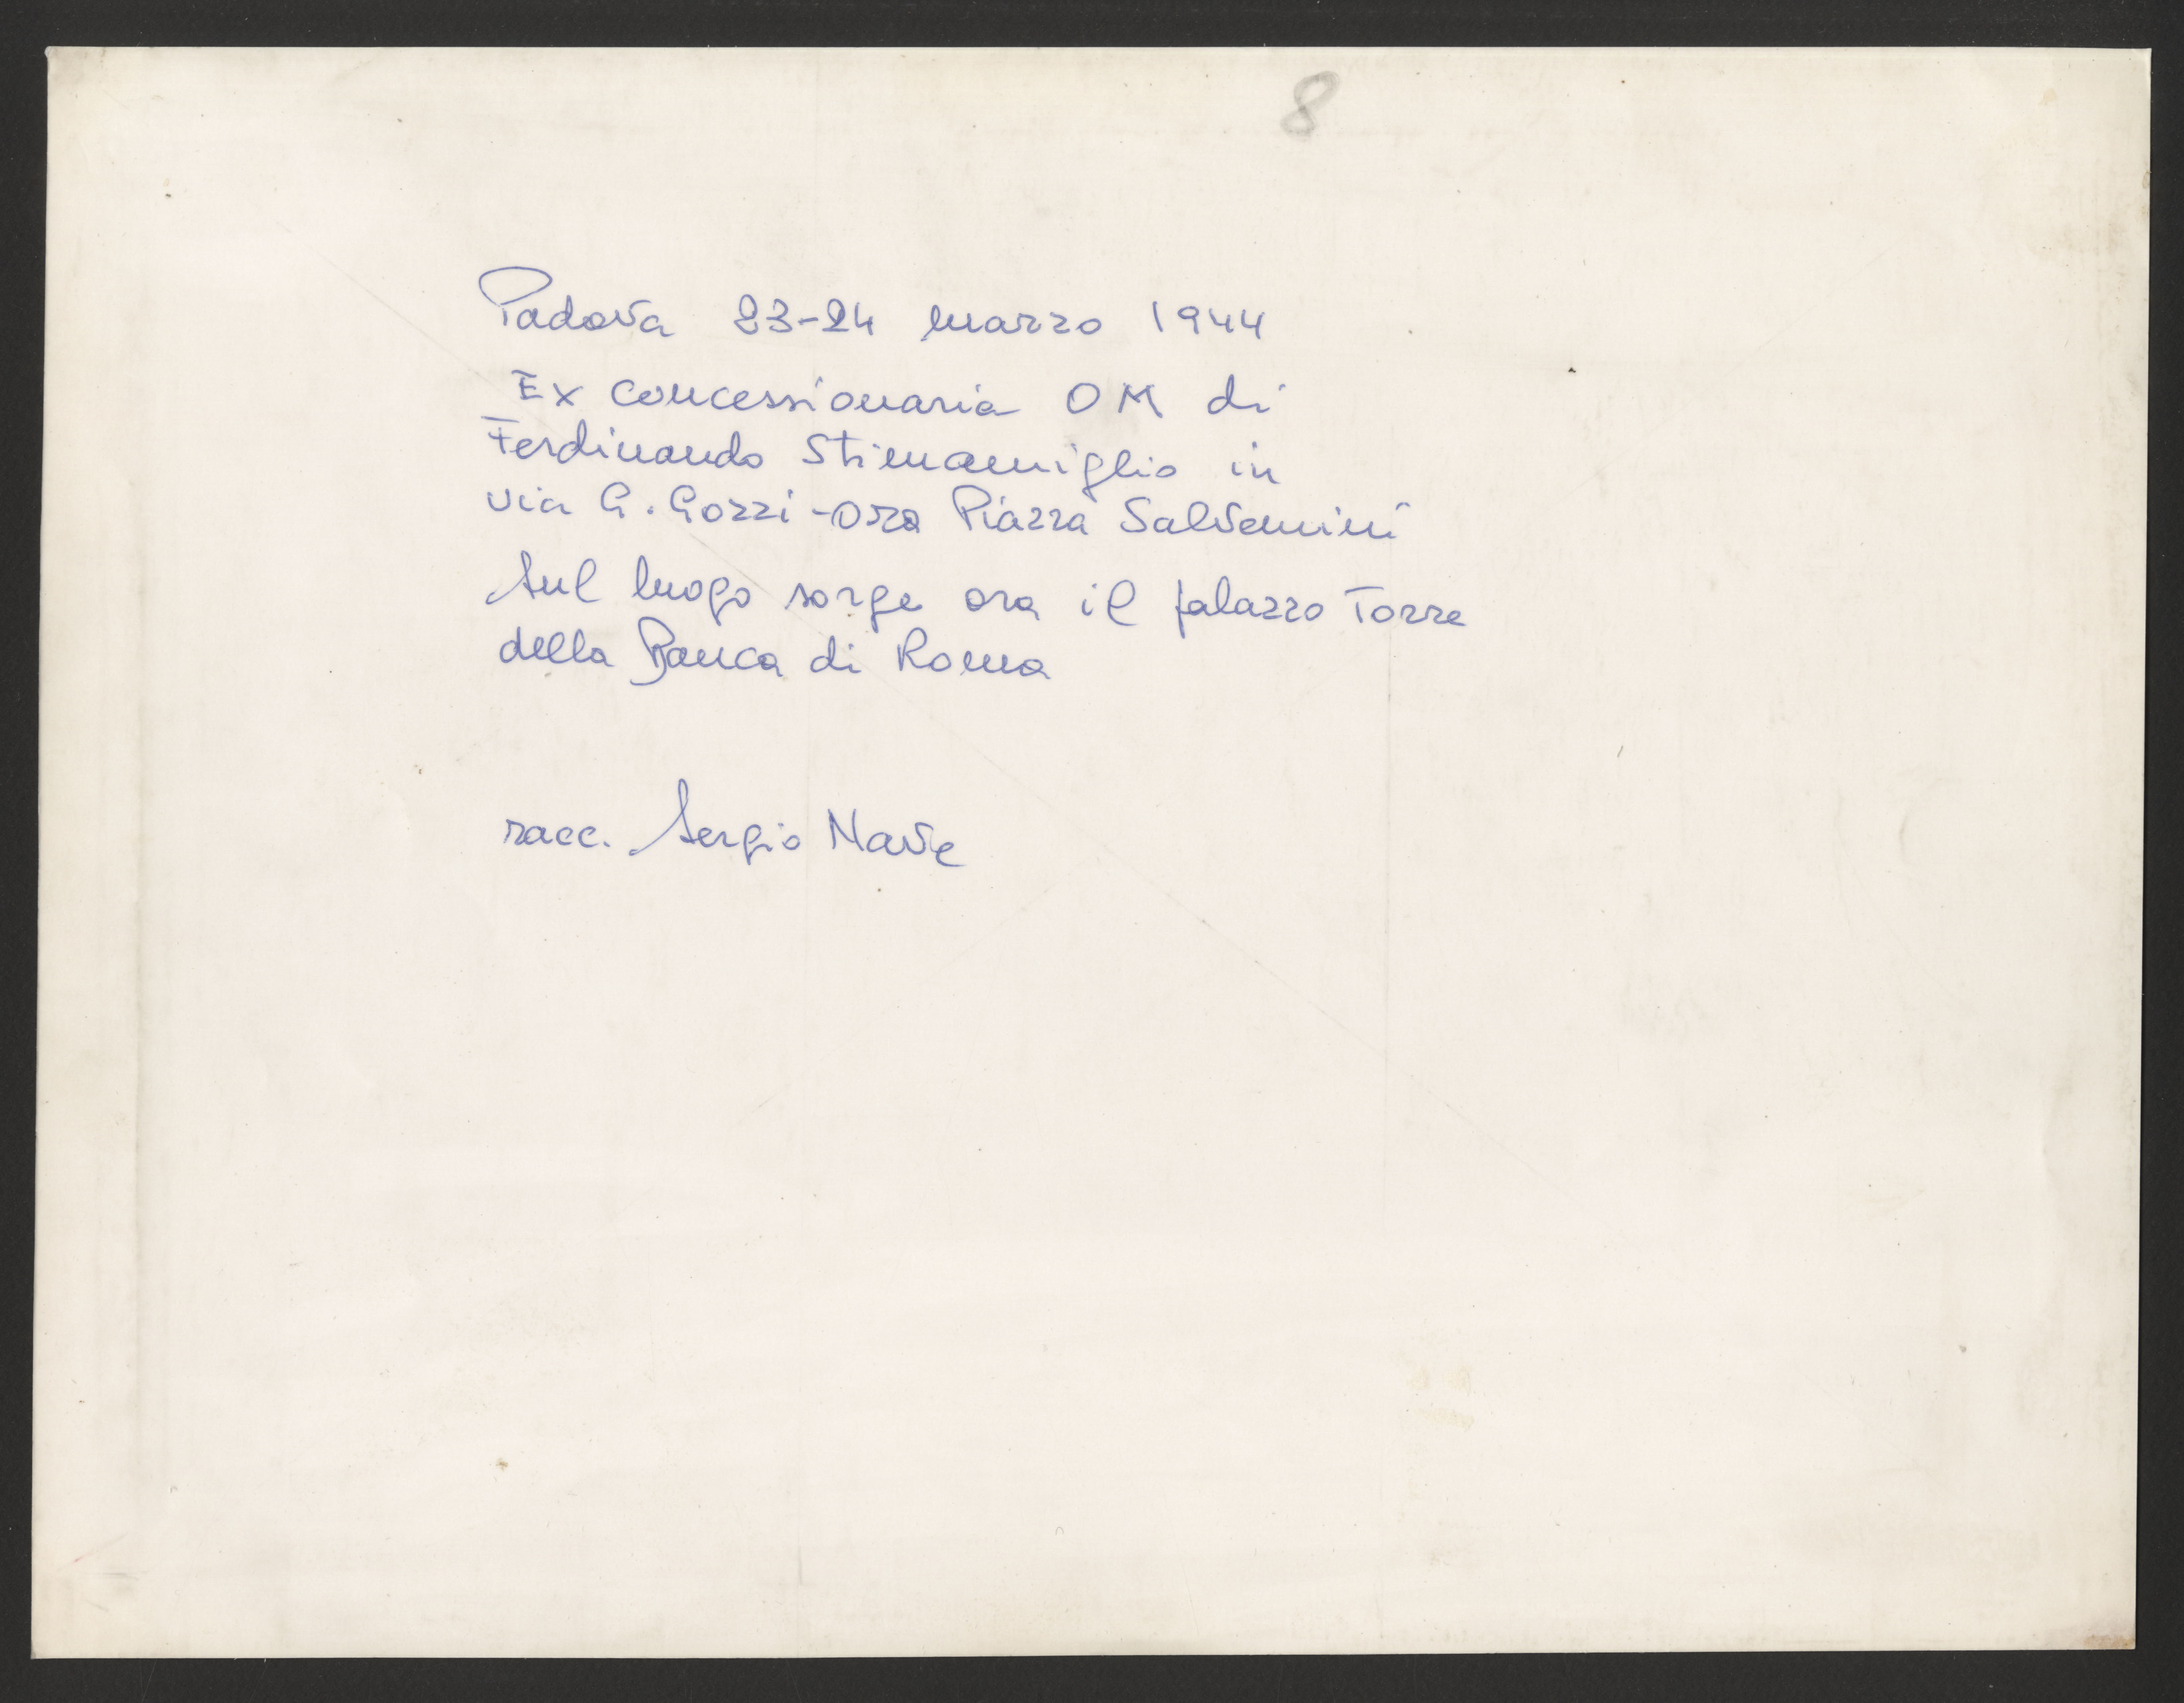 8
Padova 23-24 marzo 1944
Ex concessionaria OM di
Ferdinando Stimamiglio in
via G. Gozzi - ora Piazza Salvemini
Sul luogo sorge ora il palazzo Torre
della Banca di Roma
racc. Sergio Nave